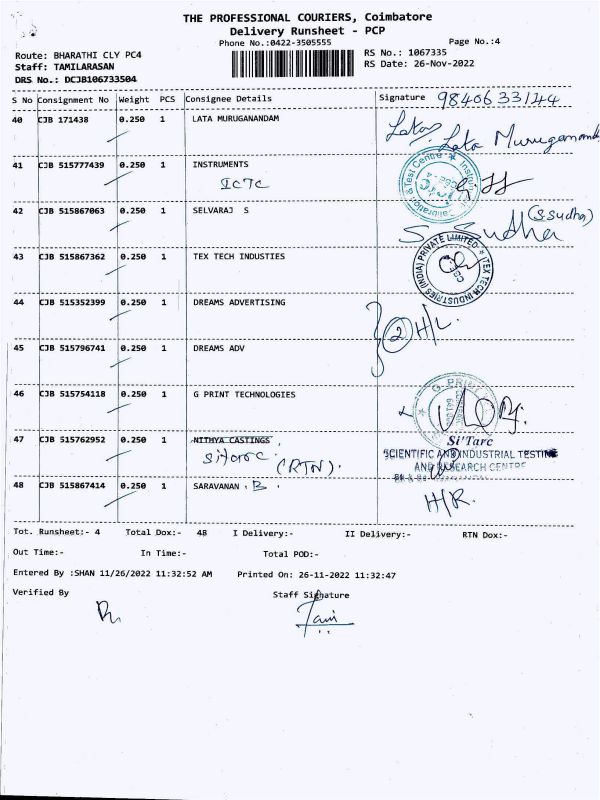 THE PROFESSIONAL COURIERS, Coimbatore
Delivery Runsheet - PCP
Phone No.:0422-3505555
Page No.:4
Route: BHARATHI CLY PC4
RS No.: 1067335
Staff: TAMILARASAN
RS Date: 26-Nov-2022
DRS No.: DCJB106733504
S No Consignment No Weight PCS Consignee Details Signature 9840633144
40 CJB 171438 0.250 1 LATA MURUGANANDAM
Lata Lata Muruganandam
41 CJB 515777439 0.250 1 INSTRUMENTS
ICTC
42 CJB 515867063 0.250 1 SELVARAJ S
S Sudha (S Sudha)
43 CJB 515867362 0.250 1 TEX TECH INDUSTIES
TEX TECH INDUSTRIES (INDIA) PRIVATE LIMITED
44 CJB 515352399 0.250 1 DREAMS ADVERTISING
2 H/L.
45 CJB 515796741 0.250 1 DREAMS ADV
46 CJB 515754118 0.250 1 G PRINT TECHNOLOGIES
47 CJB 515762952 0.250 1 NITHYA CASTINGS
Si'Tarc
SCIENTIFIC AND INDUSTRIAL TESTING
AND RESEARCH CENTRE
Sitarc (RTN).
48 CJB 515867414 0.250 1 SARAVANAN . B.
H/R.
Tot. Runsheet:- 4 Total Dox:- 48 I Delivery:- II Delivery:- RTN Dox:-
Out Time:- In Time:- Total POD:-
Entered By :SHAN 11/26/2022 11:32:52 AM Printed On: 26-11-2022 11:32:47
Verified By Staff Signature